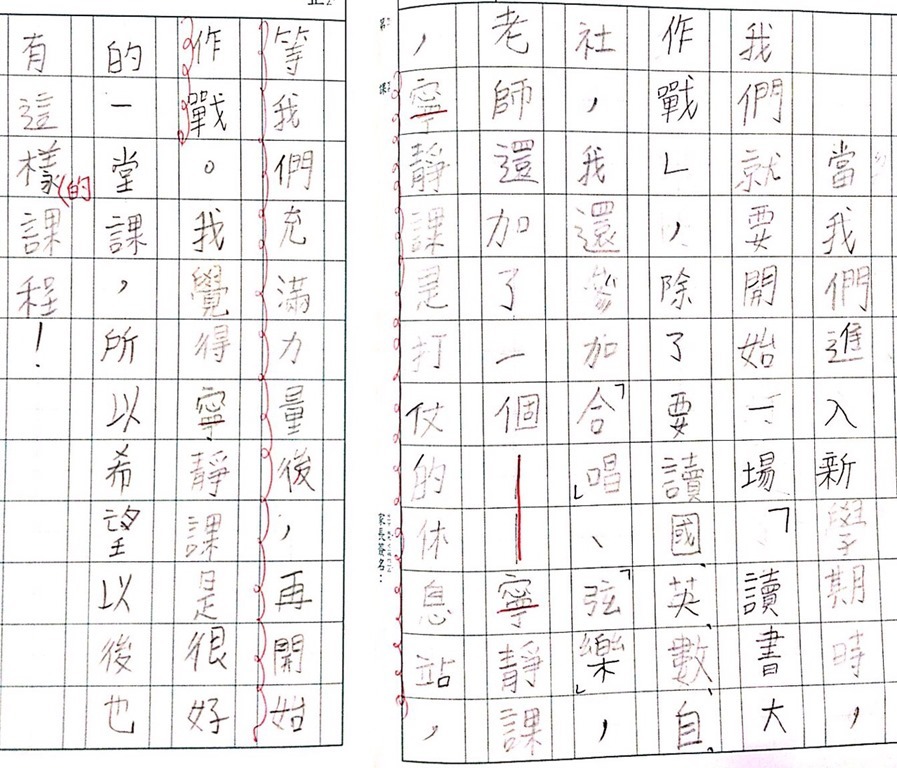 當我們進入新學期時，
我們就要開始一場「讀書大
作戰」，除了要讀國、英、數、自、
社，我還參加「合唱」、「弦樂」，
老師還加了一個—寧靜課
，寧靜課是打仗的休息站，
等我們充滿力量後，再開始
作戰。我覺得寧靜課是很好
的一堂課，所以希望以後也
有這樣(的課程！
家長簽名：